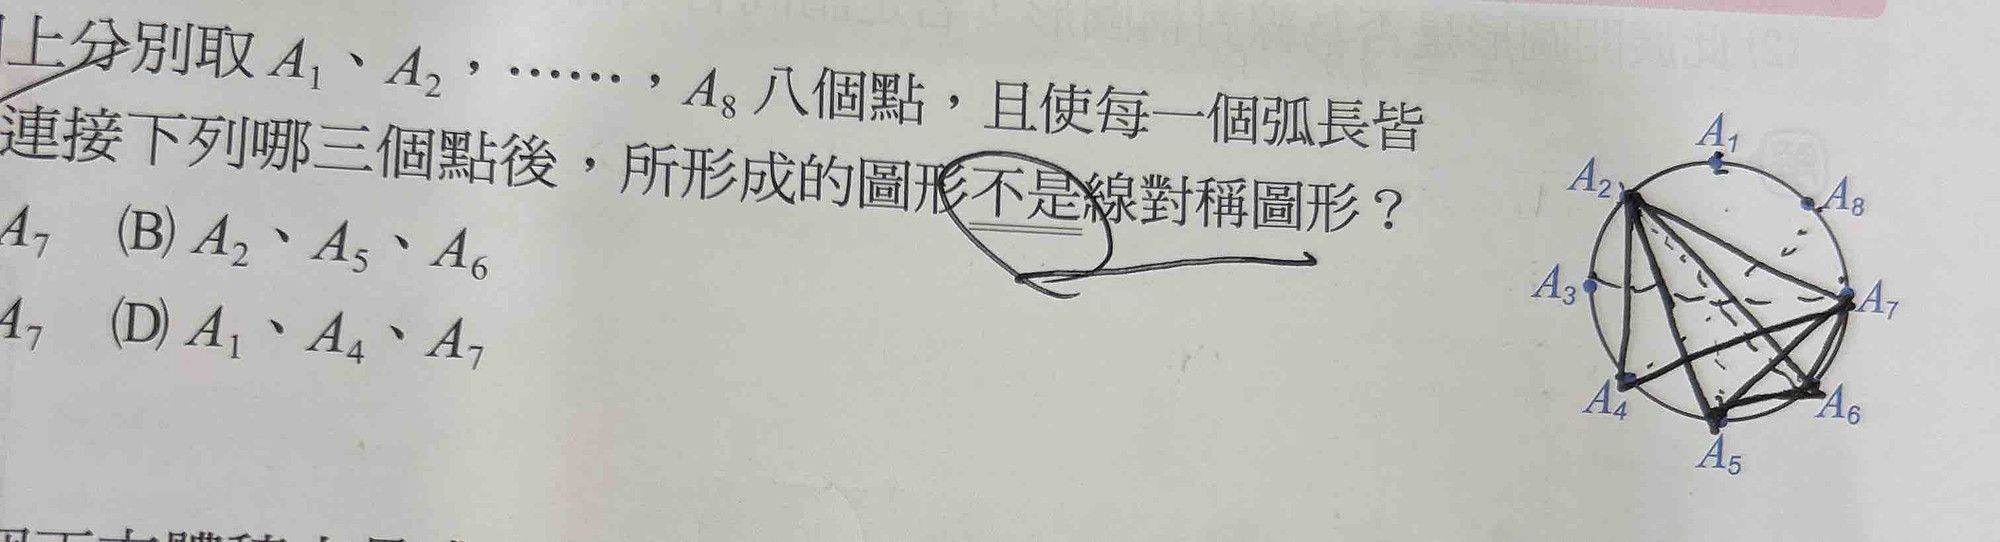 上分別取 A₁、A₂，……，A₈ 八個點，且使每一個弧長皆
連接下列哪三個點後，所形成的圖形不是線對稱圖形？
A₇ (B) A₂、A₅、A₆
A₇ (D) A₁、A₄、A₇
A₁
A₂
A₈
A₃
A₇
A₄
A₆
A₅